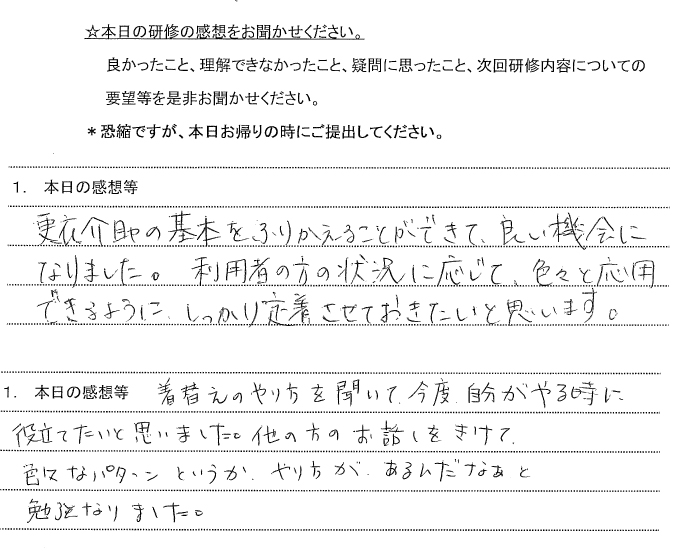 ☆本日の研修の感想をお聞かせください。
良かったこと、理解できなかったこと、疑問に思ったこと、次回研修内容についての
要望等を是非お聞かせください。
＊恐縮ですが、本日お帰りの時にご提出してください。
1. 本日の感想等
更衣介助の基本をふりかえることができて、良い機会に
なりました。利用者の方の状況に応じて、色々と応用
できるように、しっかり定着させておきたいと思います。
1. 本日の感想等 着替えのやり方を聞いて、今度、自分がやる時に
役立てたいと思いました。他の方のお話しをきけて、
色々なパターンというか、やり方が、あるんだなぁと
勉強なりました。